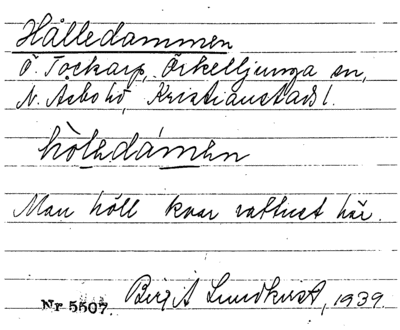 Hålledammen
Ö. Tockarp, Örkelljunga sn,
N. Åsbo hd, Kristianstads l.
hòlədámen
Man höll kvar vattnet här.
Nr 5507. Birgit Lundkvist, 1939.